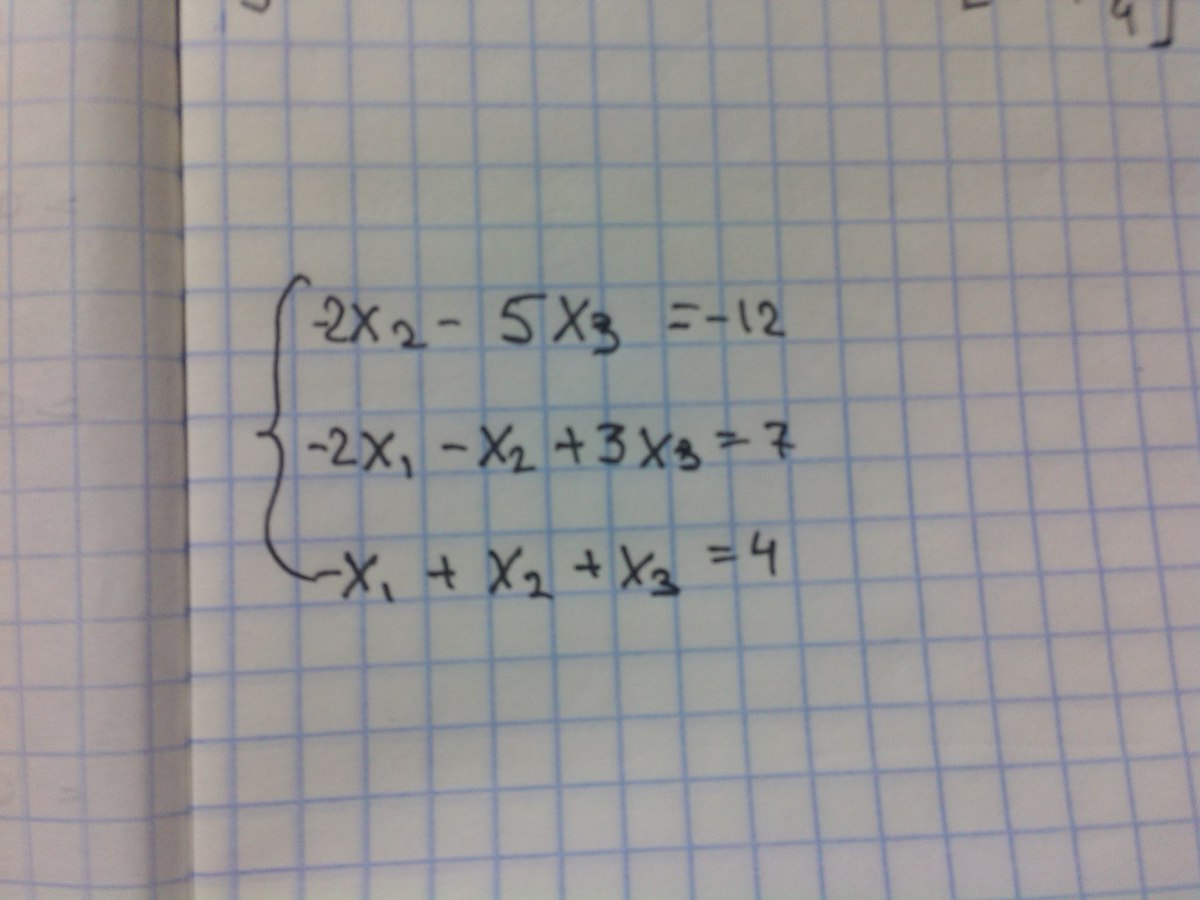 -2x₂ - 5x₃ = -12
-2x₁ - x₂ + 3x₃ = 7
-x₁ + x₂ + x₃ = 4